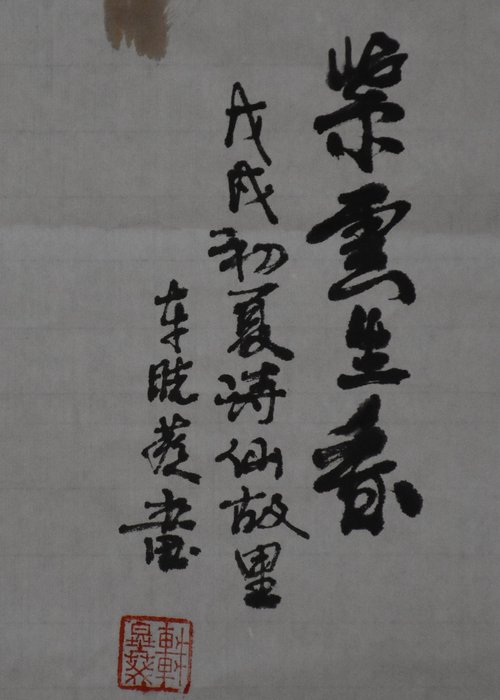 紫雲生香
戊戌初夏詩仙故里
车晓畫